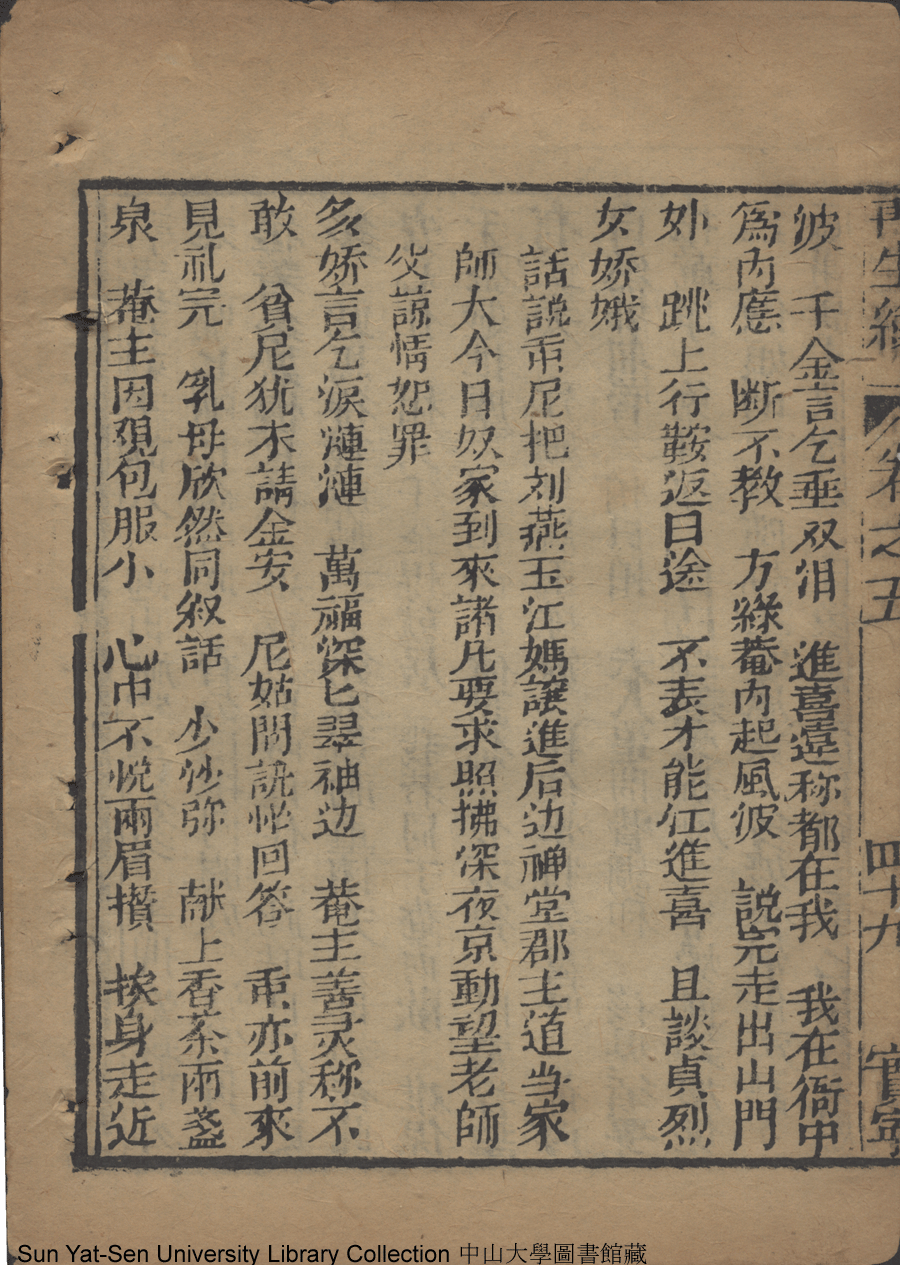 再生緣 卷之五 四十九
波 千金言乞垂双泪 進喜連称都在我 我在衙中
爲內應 断不教 方綠菴內起風波 說完走出山門
外 跳上行鞍返曰途 不表才能江進喜 且談貞烈
女娇娥
話說 尼把刘燕玉江媽讓進后边禅堂郡主道当家
師大今日奴家到來諸凡要求照拂深夜京動望老師
父諒情恕罪
多娇言乞淚漣漣 萬福深匕翠袖边 菴主善灵称不
敢 貧尼犹未請金安 尼姑問說 回答 亦前來
見礼完 乳母欣然同叙話 少沙弥 献上香茶兩盞
泉 菴主因覌包服小 心中不悅兩眉攅 挨身走近
Sun Yat-Sen University Library Collection 中山大學圖書館藏